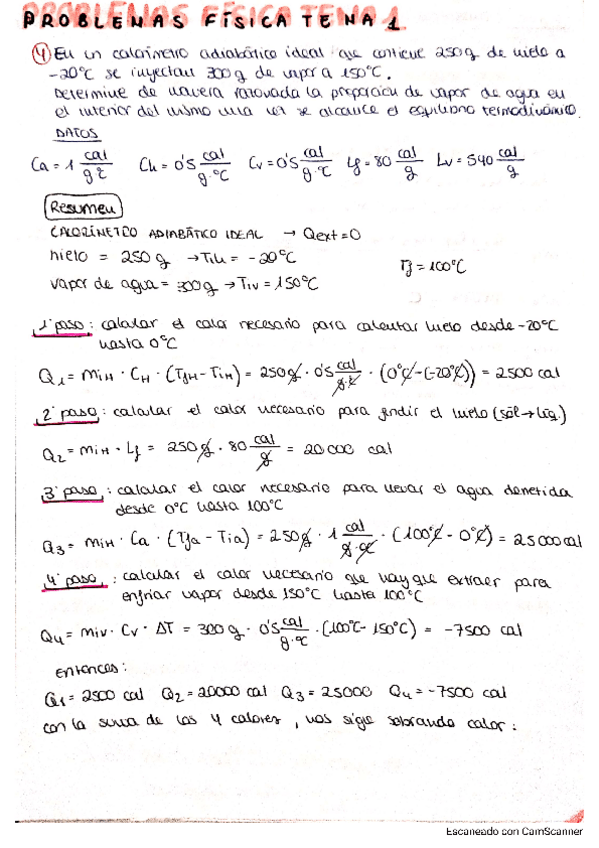 PROBLEMAS FÍSICA TEMA 1
④ En un calorímetro adiabático ideal que contiene 250 g de hielo a
-20°C se inyectan 300 g de vapor a 150°C.
Determine de manera razonada la proporción de vapor de agua en
el interior del mismo una vez se alcance el equilibrio termodinámico.
DATOS
Ca = 1 cal/g°C Ch = 0'5 cal/g·°C Cv = 0'5 cal/g·°C Lf = 80 cal/g Lv = 540 cal/g
Resumen
CALORÍMETRO ADIABÁTICO IDEAL → Qext = 0
hielo = 250 g → TiH = -20°C
Tf = 100°C
vapor de agua = 300g → Tiv = 150°C
1º paso: calcular el calor necesario para calentar hielo desde -20°C
hasta 0°C
Q1 = miH · CH · (TfH - TiH) = 250g · 0'5 cal/g·°C · (0°C - (-20°C)) = 2500 cal
2º paso: calcular el calor necesario para fundir el hielo (sól → líq.)
Q2 = miH · Lf = 250g · 80 cal/g = 20 000 cal
3º paso: calcular el calor necesario para llevar el agua derretida
desde 0°C hasta 100°C
Q3 = miH · Ca · (Tfa - Tia) = 250g · 1 cal/g·°C · (100°C - 0°C) = 25000 cal
4º paso: calcular el calor necesario que hay que extraer para
enfriar vapor desde 150°C hasta 100°C
Q4 = miv · Cv · ΔT = 300 g · 0'5 cal/g·°C · (100°C - 150°C) = -7500 cal
entonces:
Q1 = 2500 cal Q2 = 20000 cal Q3 = 25000 Q4 = -7500 cal
con la suma de los 4 calores, nos sigue sobrando calor:
Escaneado con CamScanner